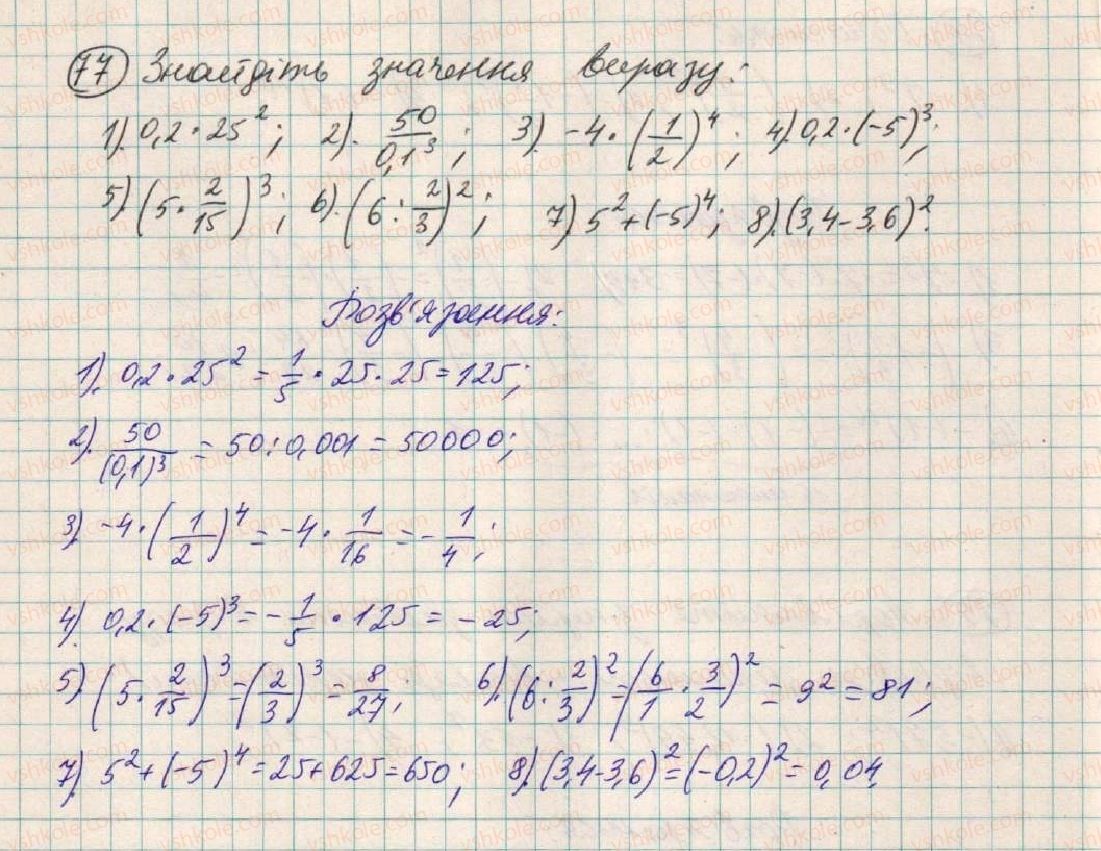 77 Знайдіть значення виразу:
1). 0,2·25²; 2). 50/0,1³; 3). -4·(1/2)⁴; 4). 0,2·(-5)³;
5). (5·2/15)³; 6). (6:2/3)²; 7) 5²+(-5)⁴; 8). (3,4-3,6)².
Розв'язання:
1). 0,2·25² = 1/5·25·25=125;
2). 50/(0,1)³ = 50:0,001 = 50000;
3) -4·(1/2)⁴ = -4·1/16 = -1/4;
4). 0,2·(-5)³ = -1/5·125 = -25;
5). (5·2/15)³=(2/3)³=8/27; 6). (6:2/3)²=(6/1·3/2)² = 9² = 81;
7). 5²+(-5)⁴=25+625=650; 8). (3,4-3,6)²=(-0,2)²=0,04.